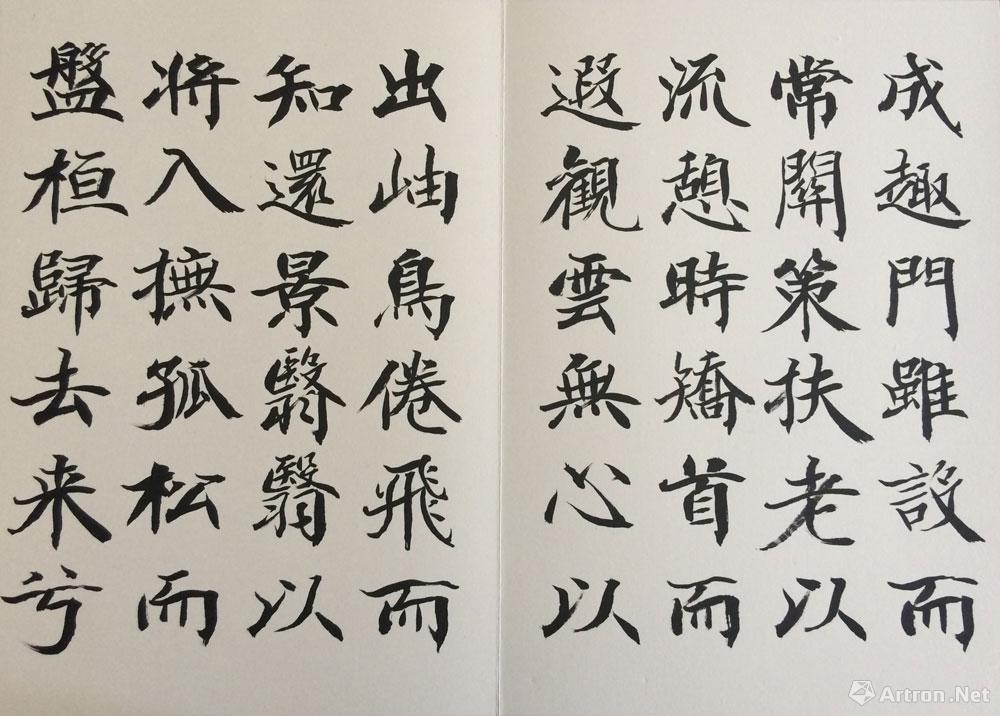 成趣門雖設而
常關策扶老以
流憩時矯首而
遐觀雲無心以
出岫鳥倦飛而
知還景翳翳以
将入撫孤松而
盤桓歸去来兮
Artron.Net